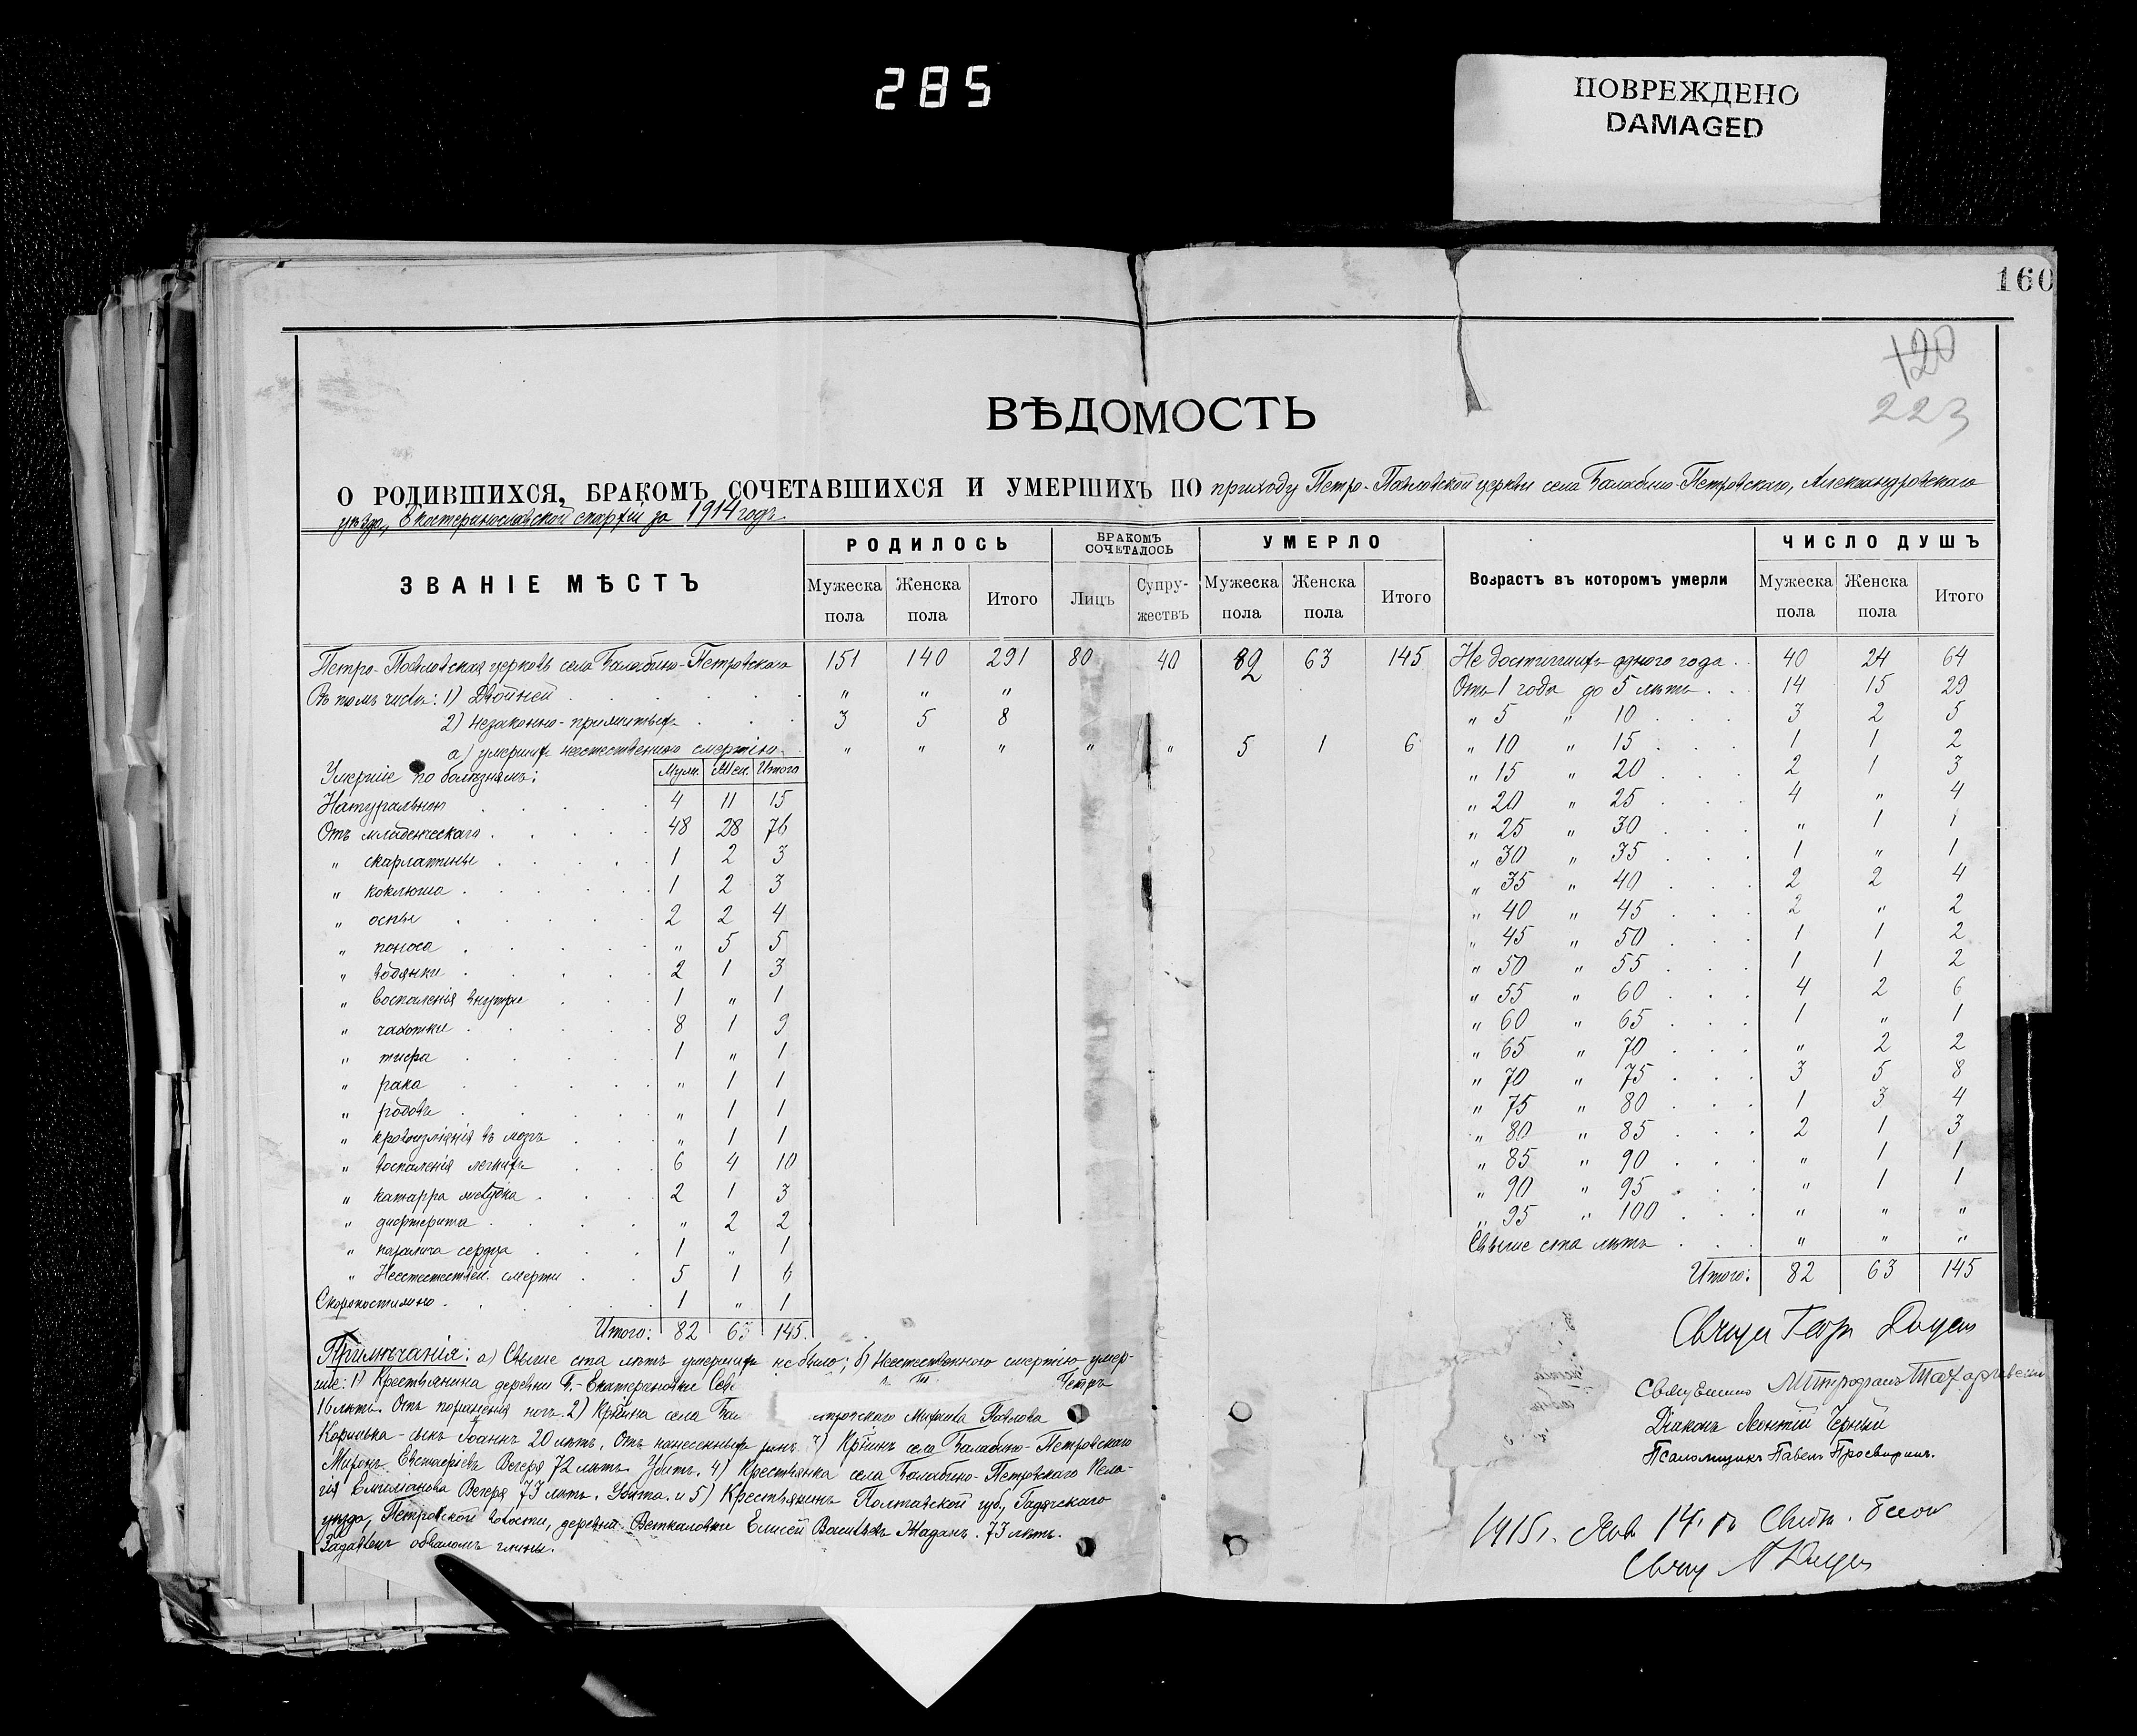 285
ПОВРЕЖДЕНО
DAMAGED
160
120
223
ВѢДОМОСТЬ
О РОДИВШИХСЯ, БРАКОМЪ СОЧЕТАВШИХСЯ И УМЕРШИХЪ ПО приходу Петро-Павловской церкви села Балабино-Петровскаго, Александровскаго
уѣзда, Екатеринославской епархіи за 1914 годъ.
ЗВАНІЕ МѢСТЪ РОДИЛОСЬ БРАКОМЪ СОЧЕТАЛОСЬ УМЕРЛО Возрастъ въ которомъ умерли ЧИСЛО ДУШЪ
Мужеска пола Женска пола Итого Лицъ Супружествъ Мужеска пола Женска пола Итого Мужеска пола Женска пола Итого
Петро-Павловская церковь села Балабино-Петровскаго 151 140 291 80 40 82 63 145
Въ томъ числѣ: 1) Двойней " " "
2) незаконно-прижитыхъ 3 5 8
а) умершихъ неестественною смертію " " " " " 5 1 6
Умершіе по болѣзнямъ: Муж. Жен. Итого
Натуральною 4 11 15
Отъ младенческаго 48 28 76
" скарлатины 1 2 3
" коклюша 1 2 3
" оспы 2 2 4
" поноса " 5 5
" водянки 2 1 3
" воспаленія внутри 1 " 1
" чахотки 8 1 9
" тифа 1 " 1
" рака " 1 1
" родовъ " 1 1
" кровоизліянія въ мозгъ " 1 1
" воспаленія легкихъ 6 4 10
" катарра желудка 2 1 3
" дифтерита " 2 2
" паралича сердца 1 " 1
" Неестествен. смерти 5 1 6
Скоропостижно 1 " 1
Итого: 82 63 145.
Примѣчанія: а) Свыше ста лѣтъ умершихъ не было; б) Неестественною смертію умер-
шіе: 1) Крестьянина деревни Б.-Екатериновки Петръ
16 лѣтъ. Отъ пораненія ногъ. 2) Кр-нина села Ба Павлова
сынъ Іоаннъ 20 лѣтъ. Отъ нанесенныхъ ранъ. 3) Кр-нинъ села Балабино-Петровскаго
Миронъ Евстафіевъ Вечеря 72 лѣтъ. Убитъ. 4) Крестьянка села Балабино-Петровскаго Пела-
гія Емиліанова Вечеря 73 лѣтъ. Убита. и 5) Крестьянинъ Полтавской губ., Гадячскаго
уѣзда, Петровской волости, деревни Веткаловки Елисей Васильевъ Жаданъ. 73 лѣтъ.
Задавленъ обваломъ глины.
Не достигшихъ одного года 40 24 64
Отъ 1 года до 5 лѣтъ 14 15 29
" 5 " 10 3 2 5
" 10 " 15 1 1 2
" 15 " 20 2 1 3
" 20 " 25 4 " 4
" 25 " 30 " 1 1
" 30 " 35 1 " 1
" 35 " 40 2 2 4
" 40 " 45 2 " 2
" 45 " 50 1 1 2
" 50 " 55 1 1 2
" 55 " 60 4 2 6
" 60 " 65 1 " 1
" 65 " 70 " 2 2
" 70 " 75 3 5 8
" 75 " 80 1 3 4
" 80 " 85 2 1 3
" 85 " 90 " 1 1
" 90 " 95 " 1 1
" 95 " 100 " " "
Свыше ста лѣтъ " " "
Итого: 82 63 145
Священникъ Митрофанъ
Діаконъ Леонтій Черный
Псаломщикъ Павелъ Просвиринъ.
1915 г.